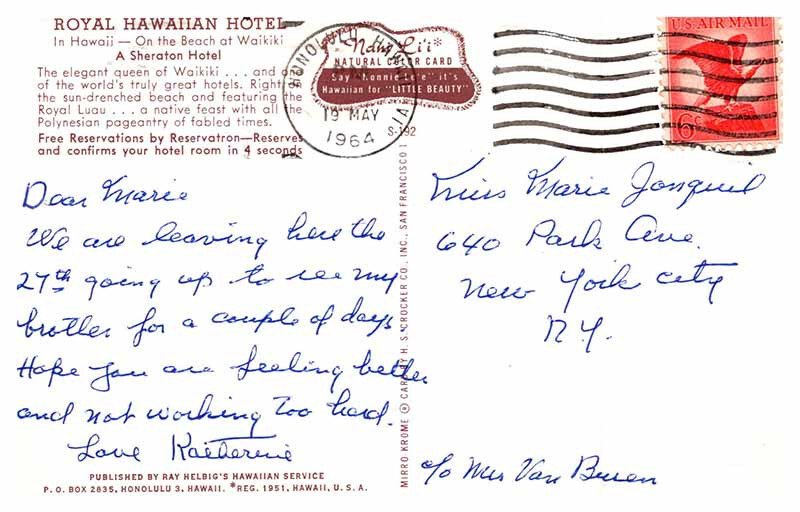 ROYAL HAWAIIAN HOTEL
In Hawaii — On the Beach at Waikiki
A Sheraton Hotel
The elegant queen of Waikiki . . . and one
of the world's truly great hotels. Right
the sun-drenched beach and featuring the
Royal Luau . . . a native feast with all the
Polynesian pageantry of fabled times.
Free Reservations by Reservatron—Reserves
and confirms your hotel room in 4 seconds
Nani Li'i*
NATURAL COLOR CARD
Say "Nonnie Lee" it's
Hawaiian for "LITTLE BEAUTY"
S-192
HONOLULU
19 MAY
1964
U.S. AIR MAIL
6c
Dear Marie
We are leaving here the
27th going up to see my
brother for a couple of days
Hope you are feeling better
and not working too hard.
Love Katherine
PUBLISHED BY RAY HELBIG'S HAWAIIAN SERVICE
P. O. BOX 2835, HONOLULU 3, HAWAII. *REG. 1951, HAWAII, U. S. A.
MIRRO KROME ® CARD BY H. S. CROCKER CO., INC., SAN FRANCISCO 1
Miss Marie Jonquil
640 Park Ave.
New York City
N.Y.
c/o Mrs Van Buren